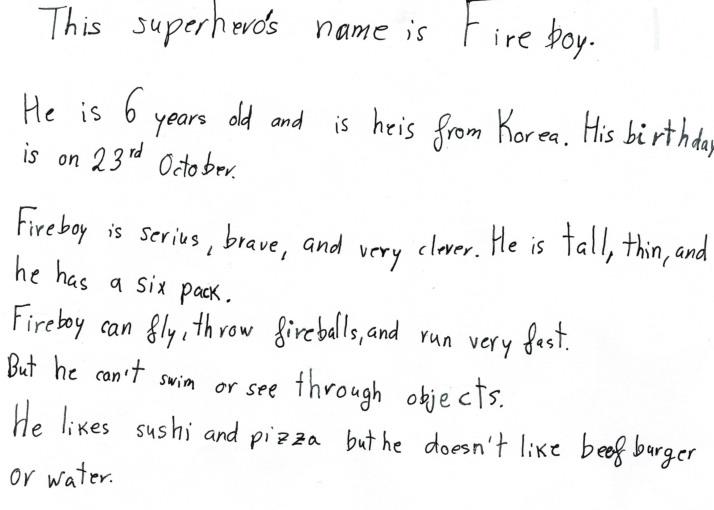 This superhero's name is Fire boy.
He is 6 years old and is heis from Korea. His birthday
is on 23rd October.
Fireboy is serius, brave, and very clever. He is tall, thin, and
he has a six pack.
Fireboy can fly, throw fireballs, and run very fast.
But he can't swim or see through objects.
He likes sushi and pizza but he doesn't like beef burger
or water.